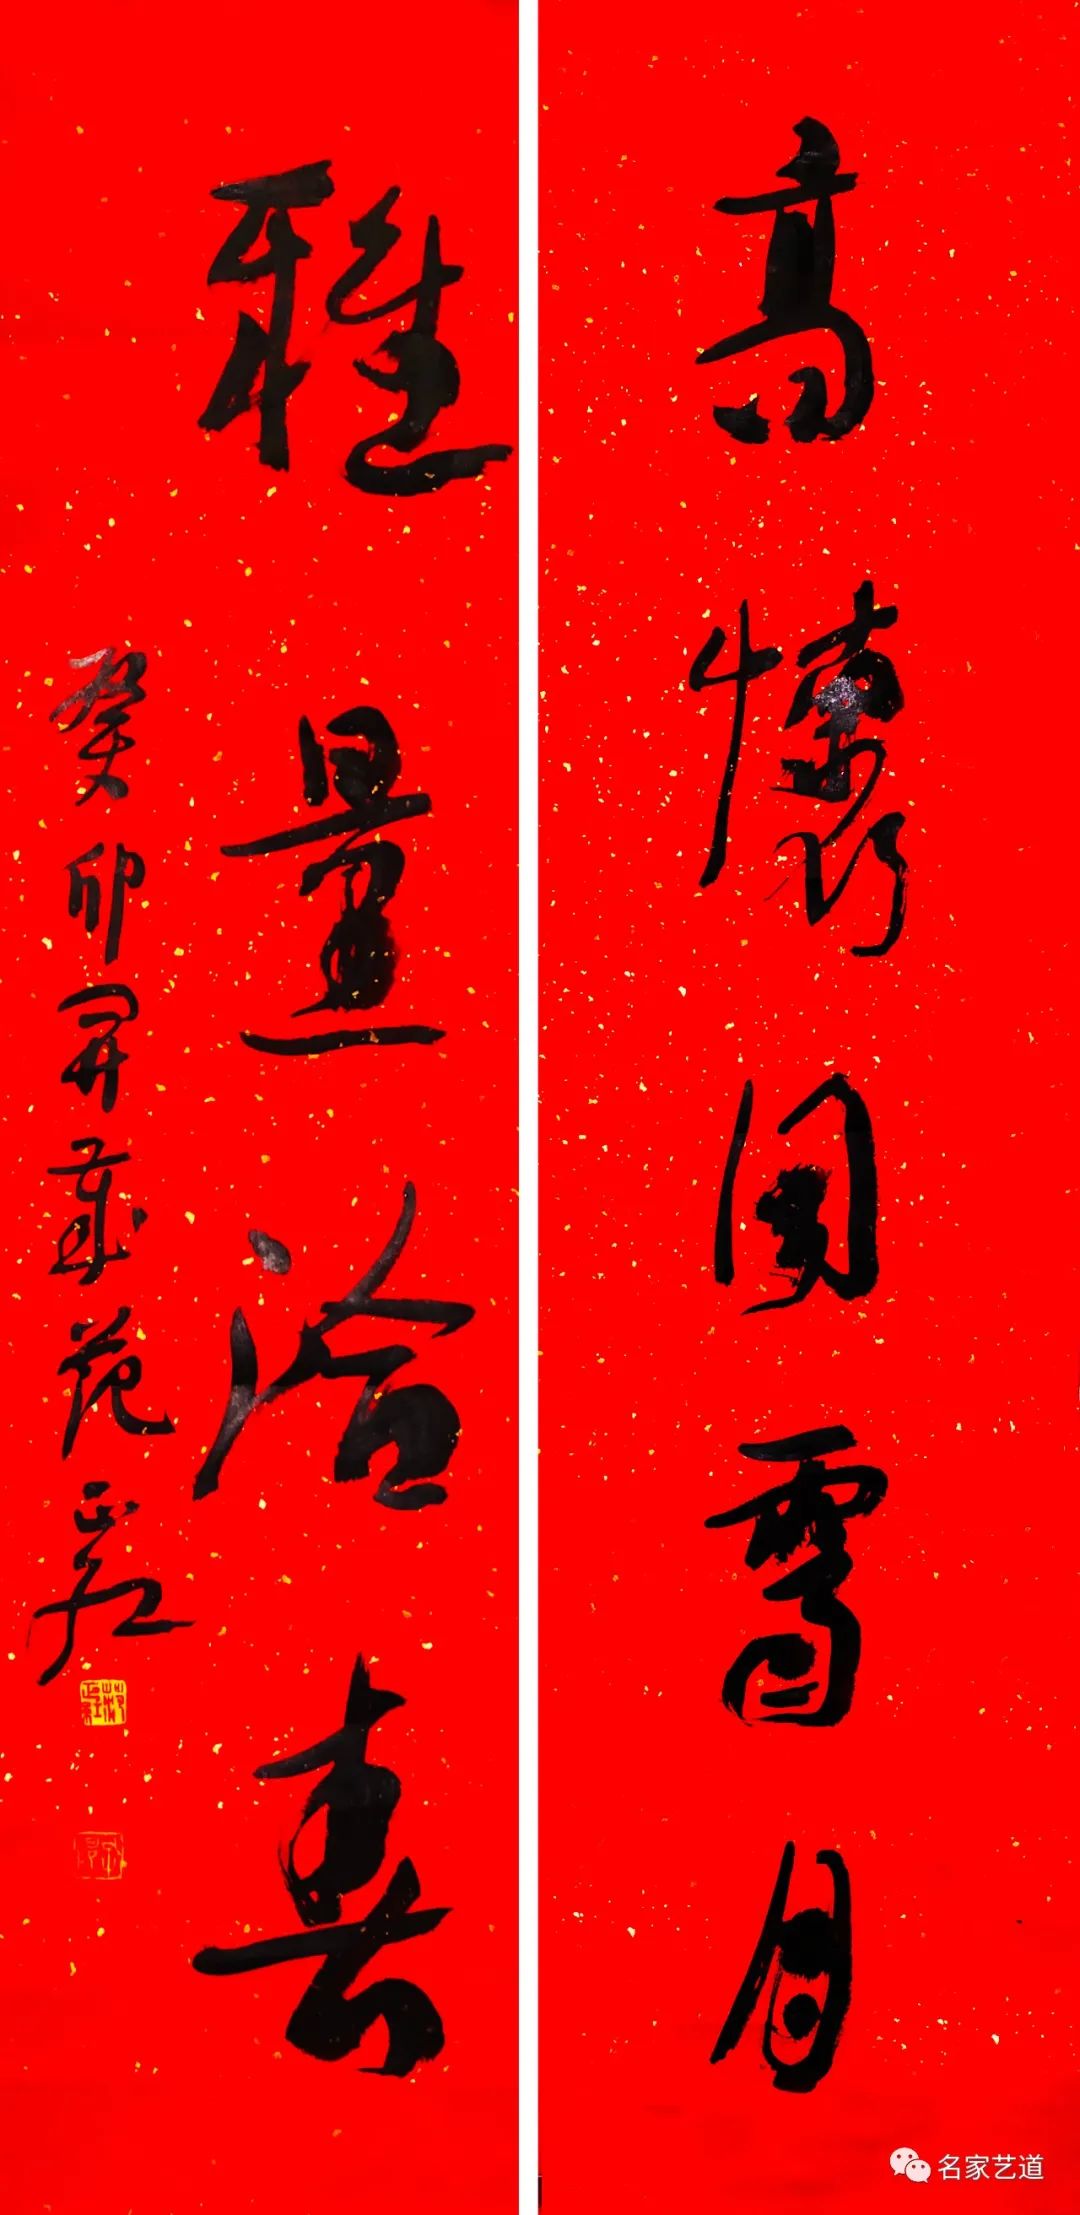 高懷同雪月
雅量洽春
癸卯開歲范正紅
名家艺道